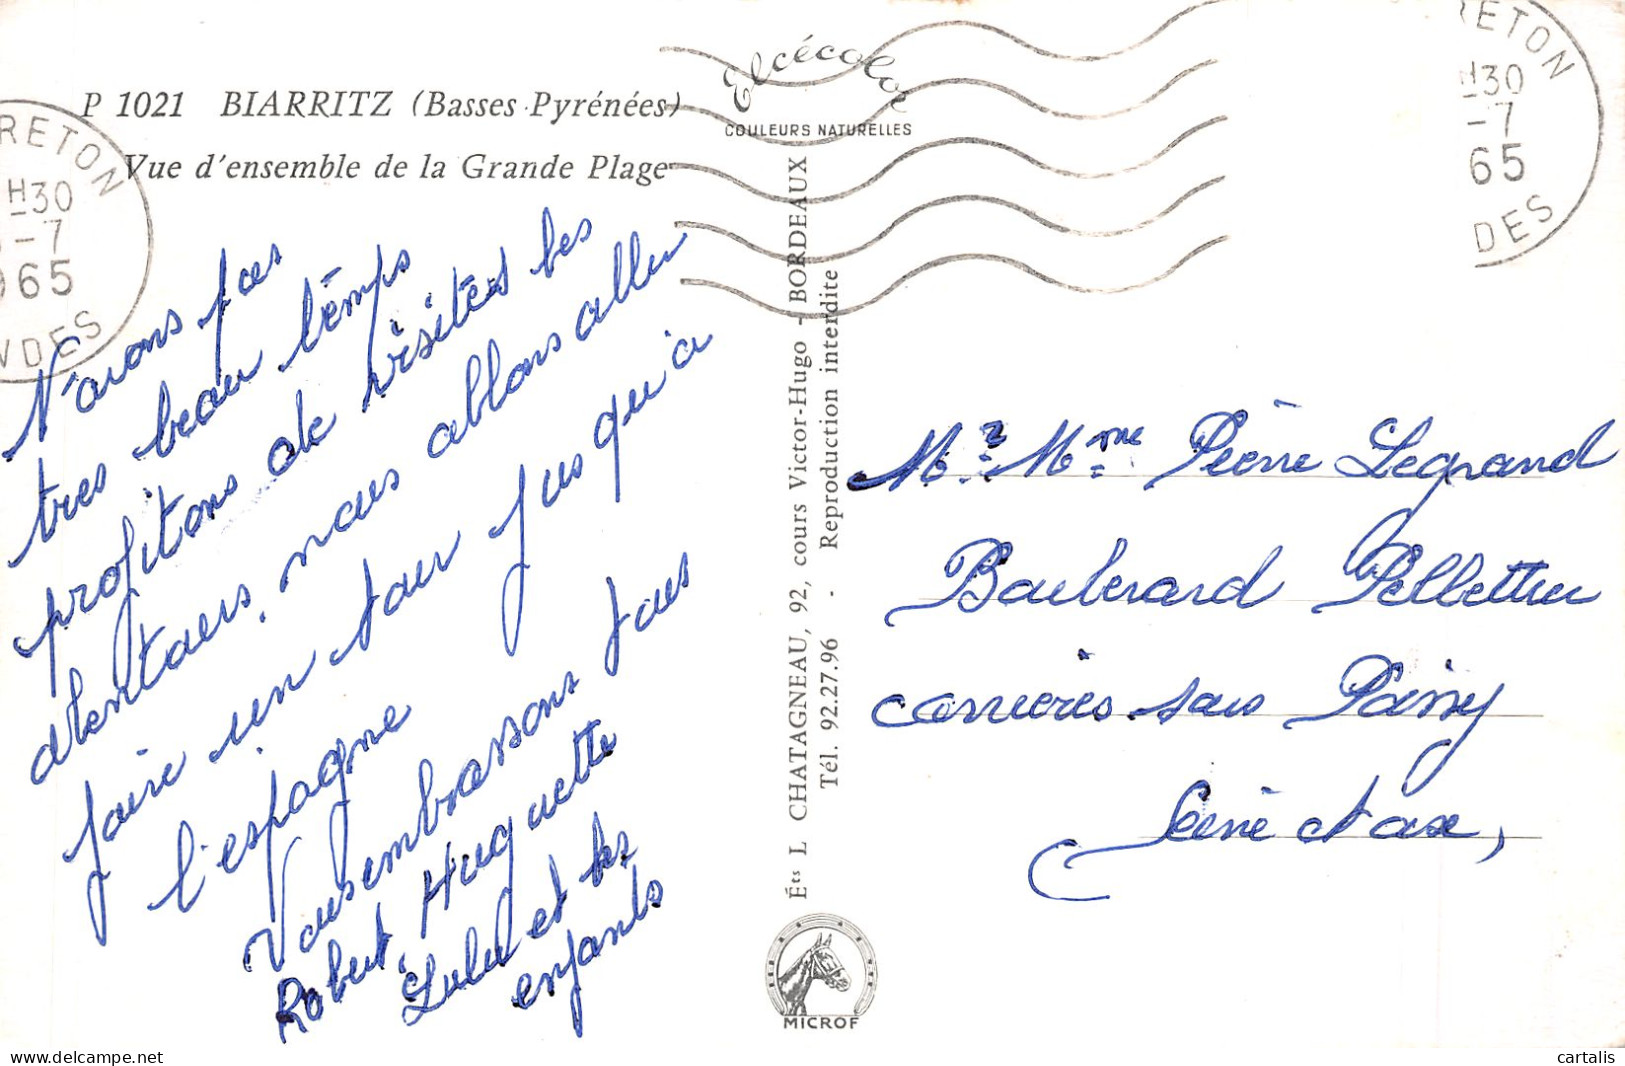 P 1021 BIARRITZ (Basses-Pyrénées)
Vue d'ensemble de la Grande Plage
RETON
H30
-7
965
DES
N'avons pas
tres beau temps
profitons de visités les
alentours, nous allons aller
faire un tour jusqu'à
l'espagne
Vous embrassons tous
Robert, Huguette
Lulu et les
enfants
Elcécolor
COULEURS NATURELLES
Éts L CHATAGNEAU, 92, cours Victor-Hugo - BORDEAUX
Tél. 92.27.96 - Reproduction interdite
MICROF
RETON
H30
-7
65
DES
Mr. Mme Pierre Legrand
Boulevard Pelletier
carrières sous Poissy
Seine et oise,
cartalis
www.delcampe.net